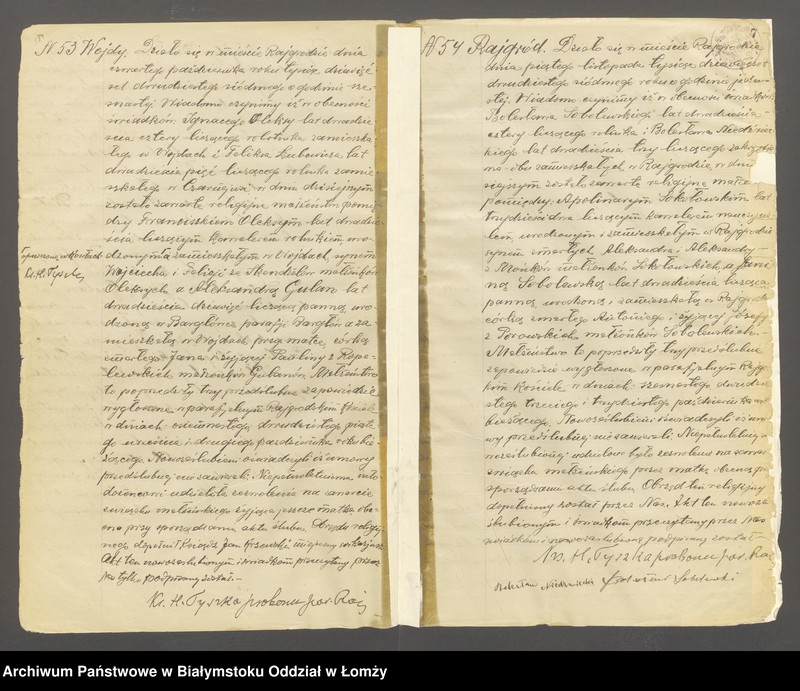 N 53 Wojdy. Działo się w mieście Rajgrodzie dnia
czwartego października roku tysiąc dziewięć
set dwudziestego siódmego o godzinie
Wiadomo czynimy iż w obecności
świadków Ignacego Oleksy lat dwadzie
ścia cztery liczącego rolnika zamieszka
łego w Wojdach i Feliksa lat
dwadzieścia pięć liczącego rolnika zamie
szkałego w w dniu dzisiejszym
zostało zawarte religijne małżeństwo pomię
dzy Franciszkiem Oleksym lat dwadzie
ścia liczącym kawalerem rolnikiem uro
dzonym a zamieszkałym w Wojdach, synem
Wojciecha i Felicji ze małżonków
Oleksych a Aleksandrą Gulan lat
dwadzieścia dziewięć liczącą panną uro
dzoną w Bargłówce parafji Bargłów a za
mieszkałą w Wojdach przy matce, córką
zmarłego Jana i żyjącej Pauliny z
małżonków Gulanów. Małżeństwo
to poprzedziły trzy przedślubne zapowiedzie
wygłoszone w parafjalnym Rajgrodzkim Kościele
w dniach osiemnastego, dwudziestego piąte
go września i drugiego października roku bie
żącego. Nowozaślubieni oświadczyli iż umowy
przedślubnej nie zawierali.
udzieliła zezwolenia na zawarcie
związku małżeńskiego żyjąca jeszcze matka obe
cna przy sporządzaniu aktu ślubu. Obrzędu religij
nego dopełnił Ksiądz Jan miejscowy wikarjusz
Akt ten nowozaślubionym i świadkom przeczytany przez
Nas tylko podpisany został.—
Ks. H. Tyszka proboszcz par. Raj
Ks. H. Tyszka
N 54 Rajgród. Działo się w mieście Rajgrodzie
dnia piątego listopada tysiąc dziewięćset
dwudziestego siódmego roku o godzinie
Wiadomo czynimy iż w obecności świadków
Bolesława Sobolewskiego lat dwadzieścia
cztery liczącego rolnika i Bolesława Niedźwie
ckiego lat dwadzieścia trzy liczącego
obu zamieszkałych w Rajgrodzie w dniu
zostało zawarte religijne małże
pomiędzy: Apolinarym Sokołowskim lat
trzydzieści dwa liczącym kawalerem
urodzonym i zamieszkałym w Rajgrodzie
synem zmarłych Aleksandra i Aleksandry
z małżonków Sokołowskich, a Jani
ną Sobolewską lat dwadzieścia licząca
panną urodzoną i zamieszkałą w Rajgrodz
córką zmarłego Antoniego i żyjącej Józefy
z małżonków Sobolewskich.
Małżeństwo to poprzedziły trzy przedślubne
zapowiedzie wygłoszone w parafjalnym Rajgr
Kościele w dniach szesnastego dwudzie
stego trzeciego i trzydziestego października
bieżącego. Nowozaślubieni oświadczyli iż umo
wy przedślubnej nie zawierali.
udzielone było zezwolenie na zawarcie
związku małżeńskiego przez matkę obecną przy
sporządzaniu aktu ślubu. Obrzęd religijny
dopełniony został przez Nas. Akt ten nowoza
ślubionym i świadkom przeczytany przez Nas
świadków i nowozaślubioną podpisany został—
Ks. H. Tyszka proboszcz par. Raj
Bolesław Niedźwiecki
Archiwum Państwowe w Białymstoku Oddział w Łomży